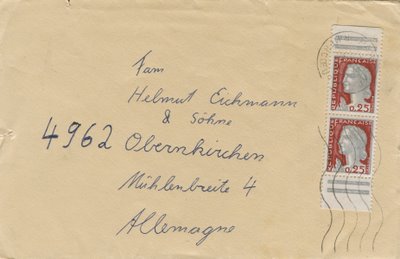 Fam
Helmut Eichmann
& Söhne
4962 Obernkirchen
Mühlenbreite 4
Allemagne
REPUBLIQUE FRANCAISE
0,25
REPUBLIQUE FRANCAISE
0,25